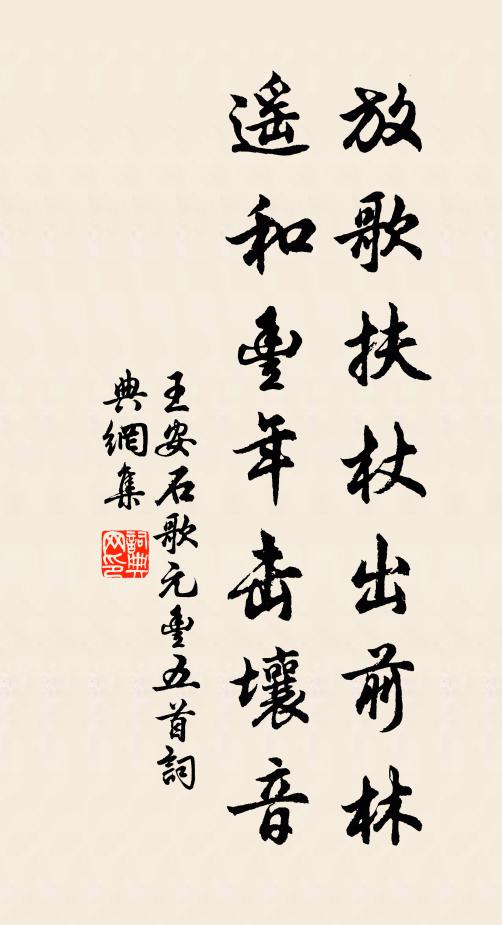 放歌扶杖出前林
遥和豊年击壤音
王安石歌元豊五首詞
典網集
詞典网印